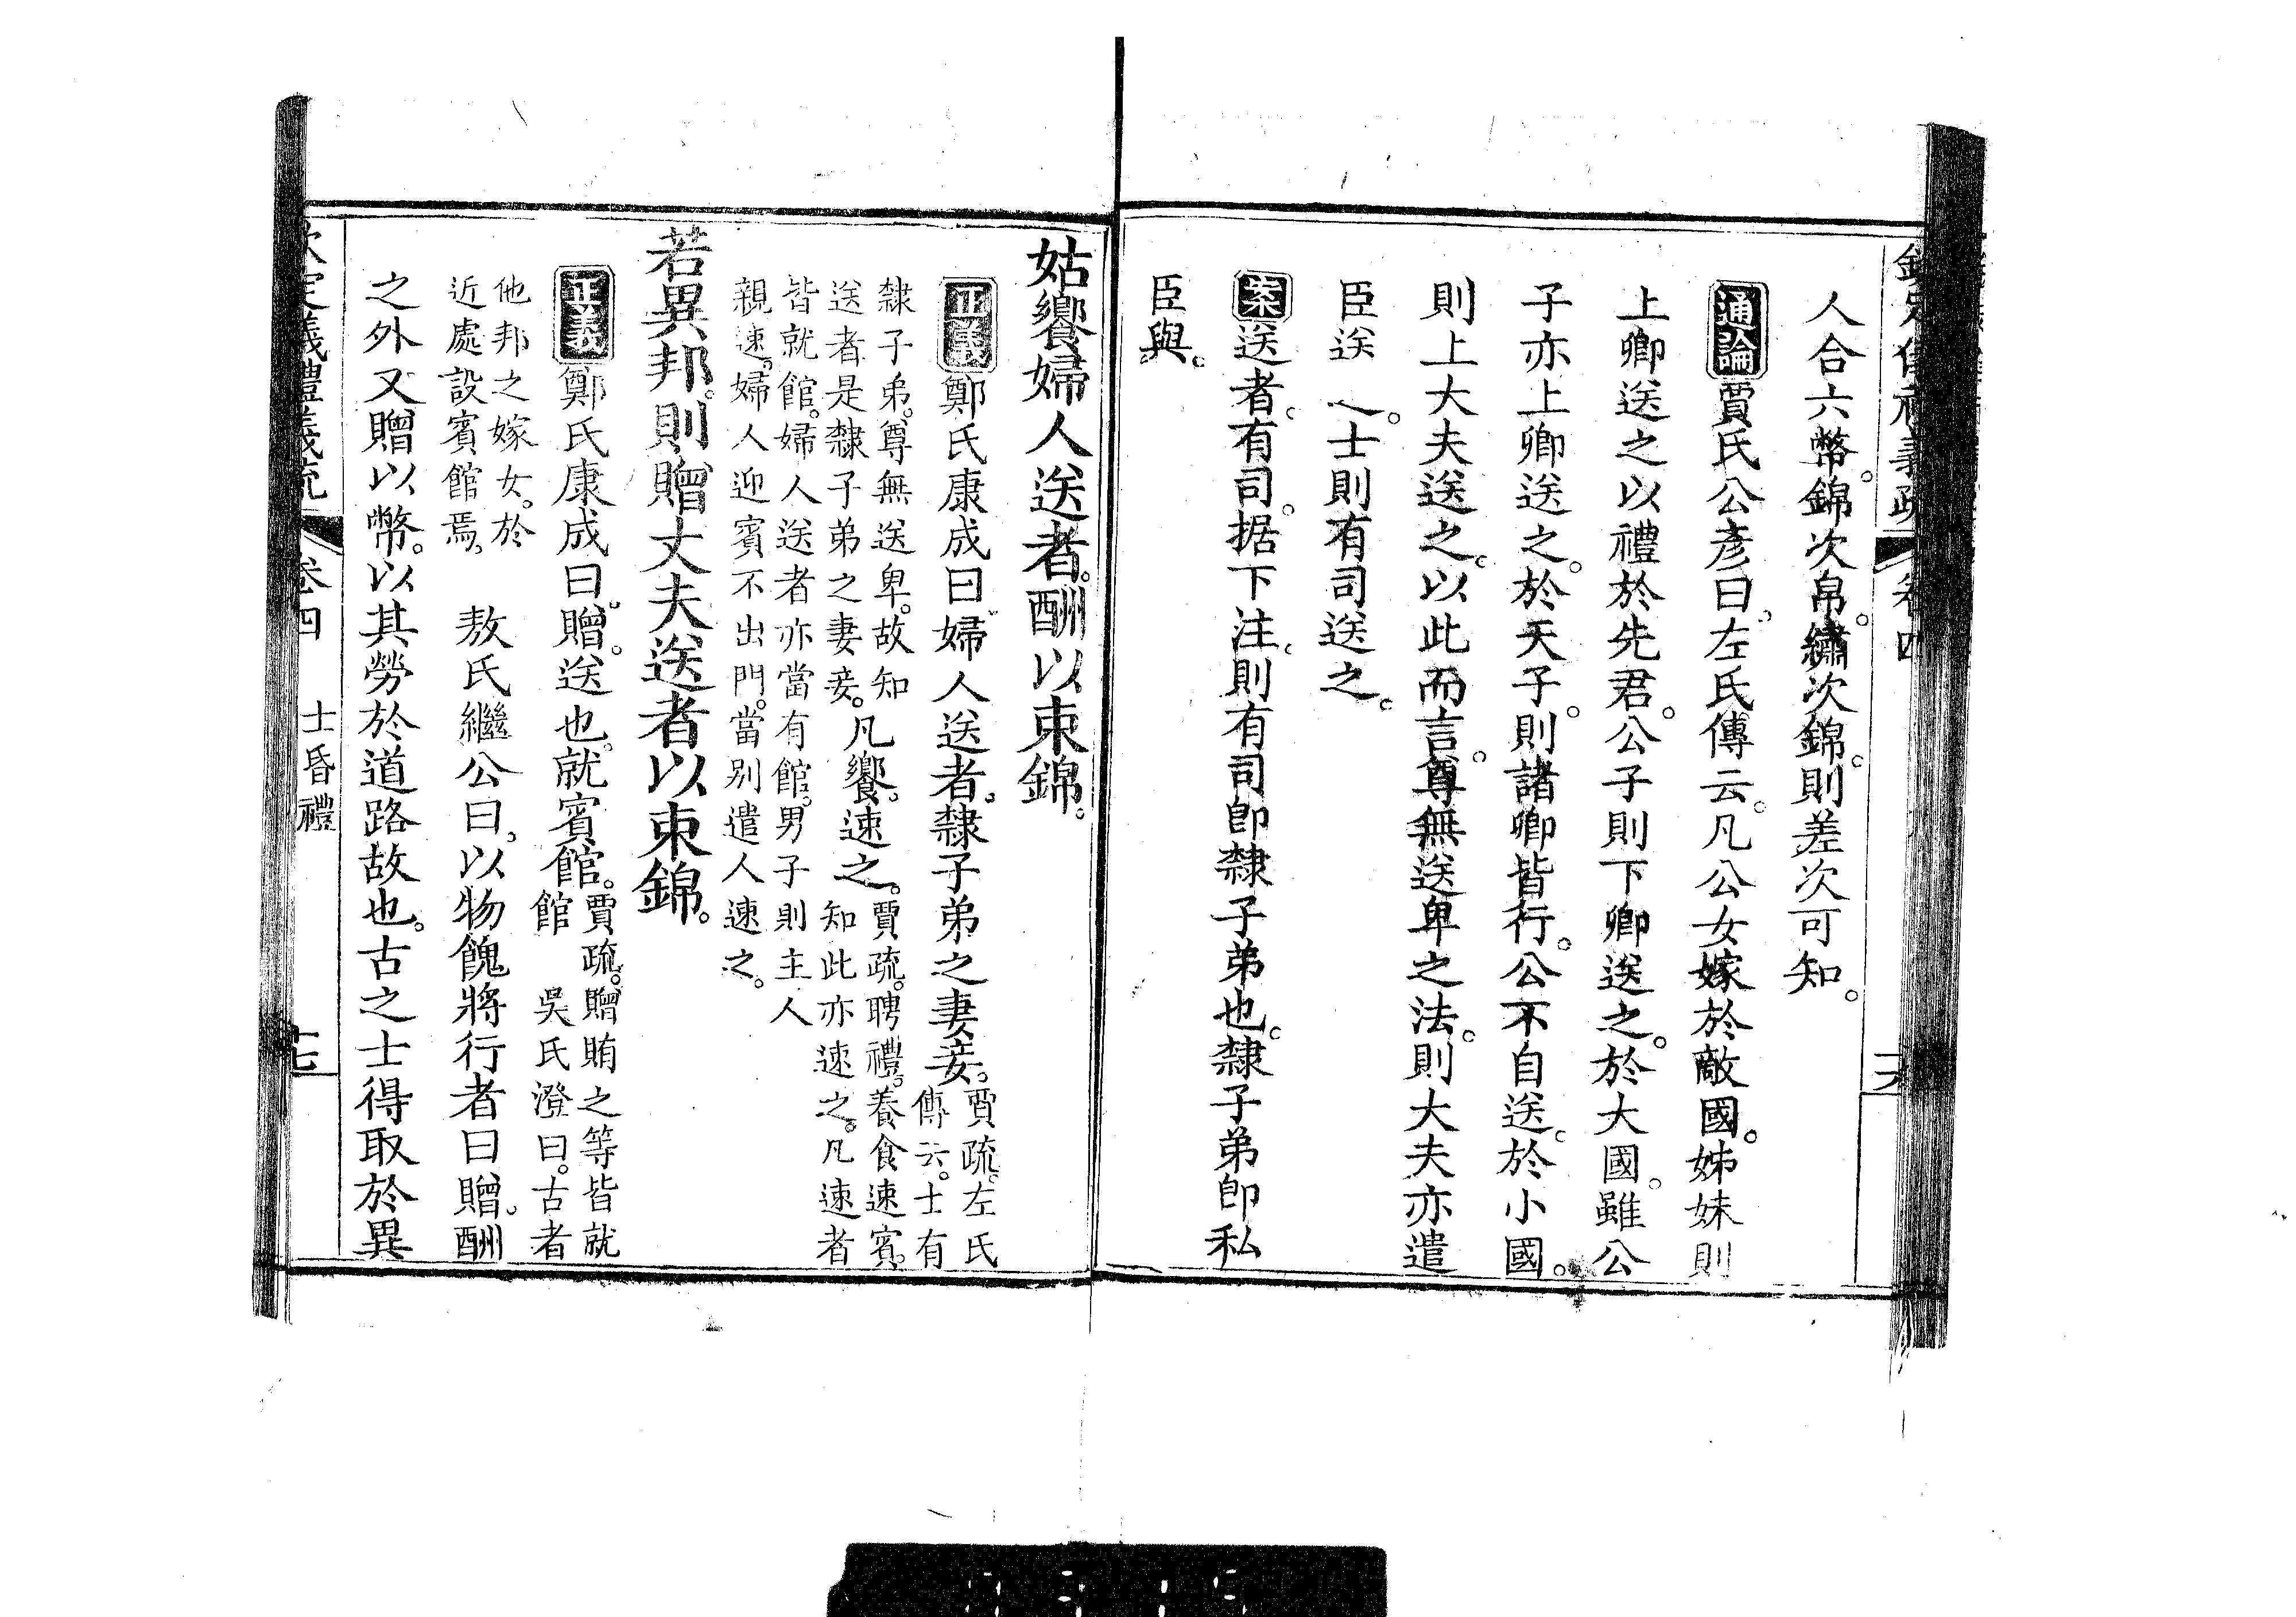 欽定儀禮義疏 卷四 十六
人合六幣。錦次帛。繡次錦。則差次可知。
通論賈氏公彥曰。左氏傳云。凡公女嫁於敵國。姊妹則
上卿送之以禮於先君。公子則下卿送之。於大國。雖公
子亦上卿送之。於天子。則諸卿皆行。公不自送。於小國。
則上大夫送之。以此而言。尊無送卑之法。則大夫亦遣
臣送之。士則有司送之。
案送者。有司。据下注。則有司卽隸子弟也。隸子弟卽私
臣與。
姑饗婦人送者。酬以束錦。
正義鄭氏康成曰。婦人送者。隸子弟之妻妾。賈疏。左氏
傳云。士有
隸子弟。尊無送卑。故知
送者是隸子弟之妻妾。凡饗。速之。賈疏。聘禮。養食速賓。
知此亦速之。凡速者
皆就館。婦人送者亦當有館。男子則主人
親速。婦人迎賓不出門。當別遣人速之。
若異邦。則贈丈夫送者以束錦。
正義鄭氏康成曰。贈。送也。就賓館。賈疏。贈賄之等皆就
館 吳氏澄曰。古者
他邦之嫁女。於
近處設賓館焉。 敖氏繼公曰。以物餽將行者曰贈。酬
之外又贈以幣。以其勞於道路故也。古之士得取於異
欽定儀禮義疏 卷四 士昏禮 十七